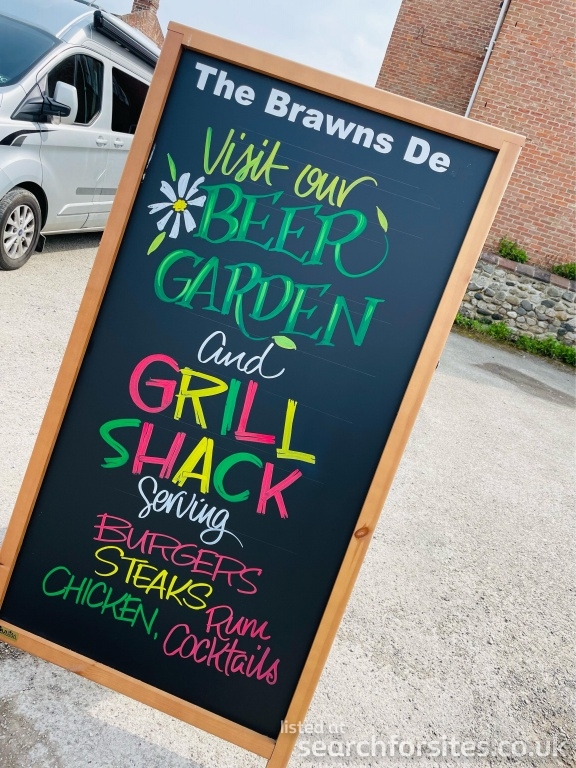 The Brawns De
Visit our
BEER
GARDEN
and
GRILL
SHACK
Serving
BURGERS
STEAKS
CHICKEN, Rum
Cocktails
listed at
searchforsites.co.uk